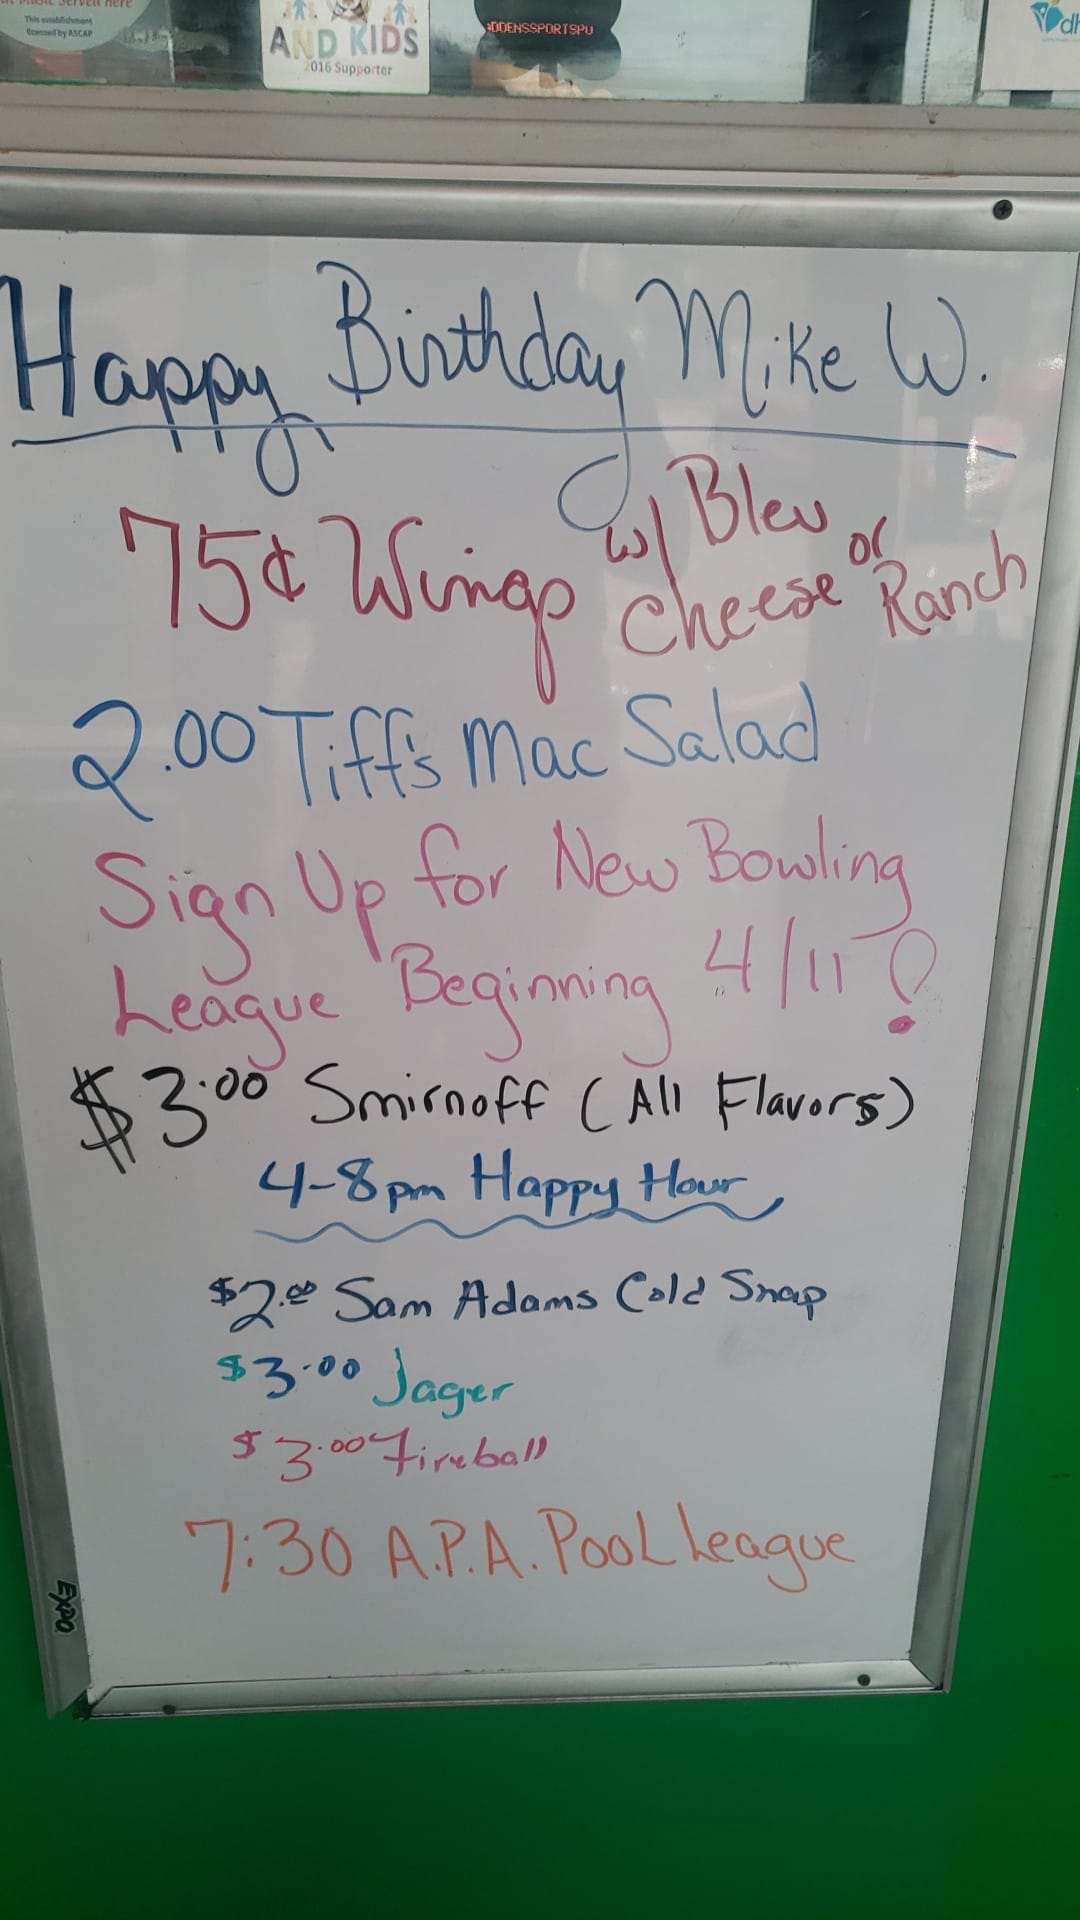 Music Served Here
This establishment
licensed by ASCAP
AND KIDS
2016 Supporter
DDENSSPORTSPU
Happy Birthday Mike W.
75¢ Wings w/ Bleu Cheese or Ranch
2.00 Tiff's Mac Salad
Sign Up for New Bowling
League Beginning 4/11!
$3.00 Smirnoff (All Flavors)
4-8pm Happy Hour
$2.00 Sam Adams Cold Snap
$3.00 Jager
$3.00 Fireball
7:30 A.P.A. Pool League
EXPO